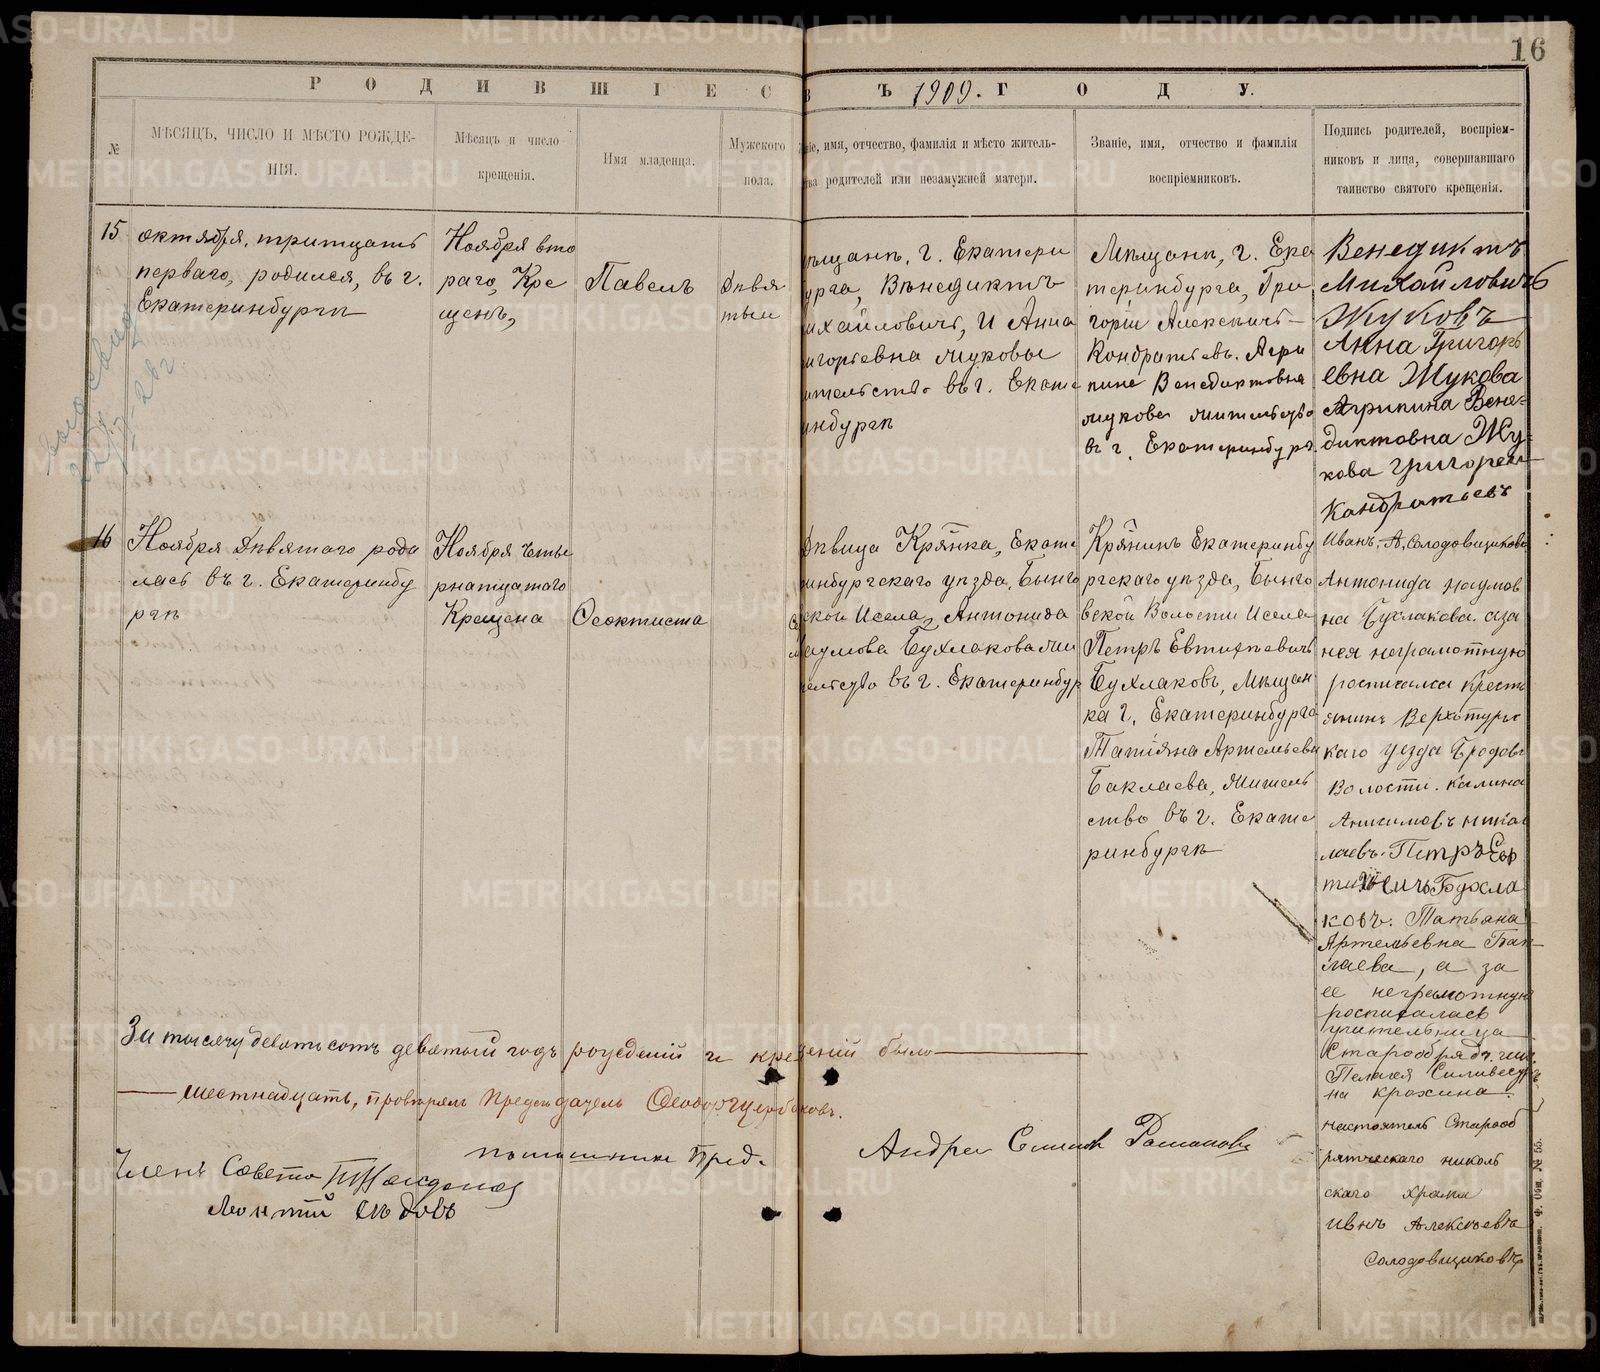 16
РОДИВШІЕС
ВЪ 1909. ГОДУ.
№
МѢСЯЦЪ, ЧИСЛО И МѢСТО РОЖДЕ-
НІЯ.
Мѣсяцъ и число
крещенія.
Имя младенца.
Мужского
пола.
ніе, имя, отчество, фамилія и мѣсто житель-
ва родителей или незамужней матери.
Званіе, имя, отчество и фамилія
воспріемниковъ.
Подпись родителей, воспріем-
никовъ и лица, совершавшаго
таинство святого крещенія.
15
октября, тритцать
перваго, родился, въ г.
Екатеринбургѣ
Ноября вто
раго, Кре
щенъ,
Павелъ
Девя
тый
мѣщанѣ, г. Екатери
урга, Вѣнедиктъ
ихайловичъ, И Анна
игорьевна Жуковы
ительство въ г. Екате
инбургѣ
Мѣщанѣ, г. Ека
теринбурга, Гри
горій Алексѣичъ
Кондратьевъ. Агри
пина Венедиктовна
Жукова жительство
въ г. Екатеринбург
Венедиктъ
Михайловичъ
Жуковъ
Анна Григорь
евна Жукова
Агрипина Вене-
диктовна Жу-
кова Григорей
Кандратьевъ
16
Ноября Девятаго роди
лась въ г. Екатеринбу
ргѣ
Ноября четы
рнатцатаго
Крещена
Феоктиста
Девица Кр-янка, Екате
ринбургскаго уѣзда, Бынго
ской Исела, Антонида
аумова Бухлакова жи
ельство въ г. Екатеринбур
Кр-янинъ Екатеринбу
ргскаго уѣзда, Бынго
вской Волости Исела
Петръ Евтифѣевичъ
Бухлаковъ, Мѣщан
ка г. Екатеринбурга
Татіяна Артемьевн
Баклаева, Житель
ство въ г. Екате
ринбургѣ
Иванъ, А, Солодовщиковъ
Антонида наумов
на Бухлакова. аза
нея неграмотную
росписался Кресть
янинъ Верхотурьс
каго уезда
Волости. Калина
Анисимовъ никол
лаевъ. Петръ Ев
тиховичъ Бухла
ковъ. Татьяна
Артемьевна Бак
лаева, а за
ее неграмотную
росписалась
учительница
Старообрядч.
Пелагея Силивестр
на Крохина.
настоятель Старооб
рятческаго николь
скаго храма
Иванъ Алексѣевъ
Солодовщиковъ
За тысячу девятьсотъ девятый годъ рожденій и крещеній было
шестнадцать, провѣрялъ Председатель Феодор Щербаковъ.
помошникъ Пред.
Андрей Романовъ
Членъ Совета
Леонтій Седовъ